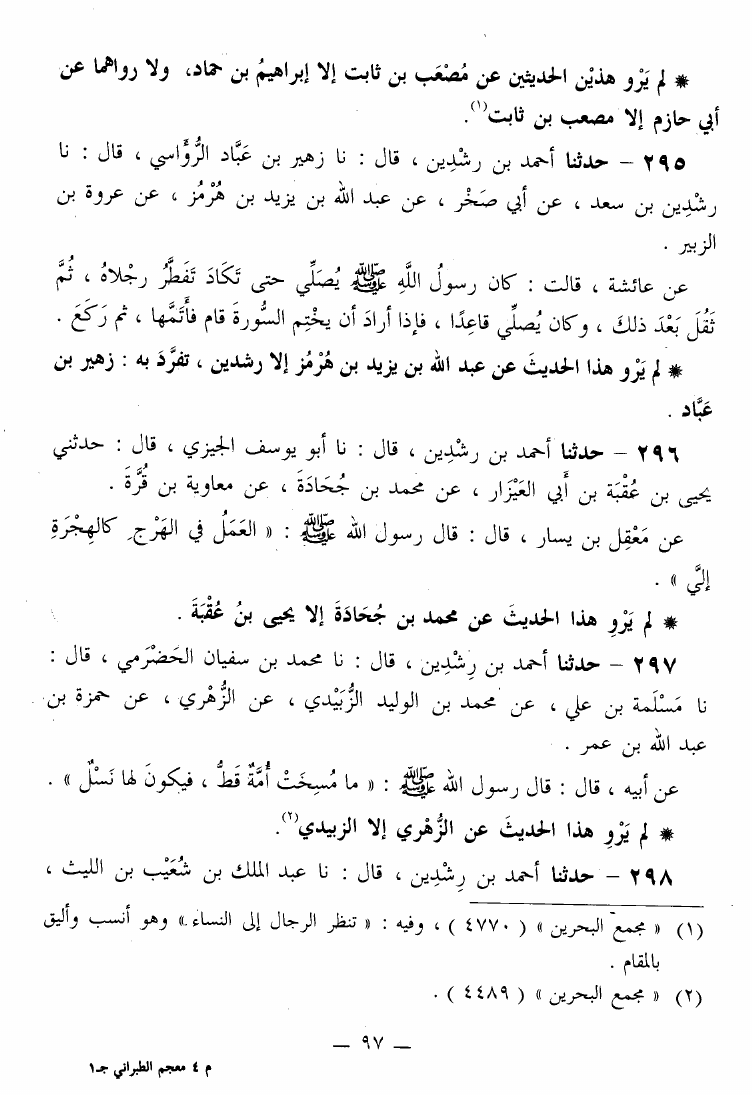 * لم يَرْوِ هذيْن الحديثين عن مُصْعَب بن ثابت إلا إبراهيمُ بن حماد، ولا رواهما عن
أبي حازم إلا مصعب بن ثابت(١).
٢٩٥ – حدثنا أحمد بن رِشْدِين ، قال : نا زهير بن عَبَّاد الرُّؤَاسي ، قال : نا
رِشْدِين بن سعد ، عن أبي صَخْر ، عن عبد الله بن يزيد بن هُرْمُز ، عن عروة بن
الزبير .
عن عائشة ، قالت : كان رسولُ اللَّهِ ﷺ يُصَلِّي حتى تَكَادَ تَفَطَّرُ رِجْلاهُ ، ثُمَّ
ثَقُلَ بَعْدَ ذلكَ ، وكان يُصلِّي قاعِدًا ، فإذا أرادَ أن يختِم السُّورةَ قام فأتمَّها ، ثم ركَعَ .
* لم يَرْوِ هذا الحديثَ عن عبد الله بن يزيد بن هُرْمُز إلا رشدين ، تفرَّدَ به : زهير بن
عَبَّاد .
٢٩٦ – حدثنا أحمد بن رِشْدِين ، قال : نا أبو يوسف الجيزي ، قال : حدثني
يحيى بن عُقْبَة بن أَبي العَيْزار ، عن محمد بن جُحَادَةَ ، عن معاوية بن قُرَّةَ .
عن مَعْقِل بن يسار ، قال : قال رسول الله ﷺ : « العَمَلُ في الهَرْجِ كالهِجْرَةِ
إليَّ » .
* لم يَرْوِ هذا الحديثَ عن محمد بن جُحَادَةَ إلا يحيى بنُ عُقْبَةَ .
٢٩٧ – حدثنا أحمد بن رِشْدِين ، قال : نا محمد بن سفيان الحَضْرَمي ، قال :
نا مَسْلَمة بن علي ، عن محمد بن الوليد الزُّبَيْدي ، عن الزُّهْري ، عن حمزة بن
عبد الله بن عمر .
عن أبيه ، قال : قال رسول الله ﷺ : « ما مُسِخَتْ أُمَّةٌ قَطُّ ، فيكونَ لها نَسْلٌ » .
* لم يَرْوِ هذا الحديثَ عن الزُّهْري إلا الزبيدي(٢).
٢٩٨ – حدثنا أحمد بن رِشْدِين ، قال : نا عبد الملك بن شُعَيْب بن الليث ،
(١) « مجمع البحرين » ( ٤٧٧٠ ) ، وفيه : « تنظر الرجال إلى النساء » وهو أنسب وأليق
بالمقام .
(٢) « مجمع البحرين » ( ٤٤٨٩ ) .
— ٩٧ —
م ٤ معجم الطبراني جـ١